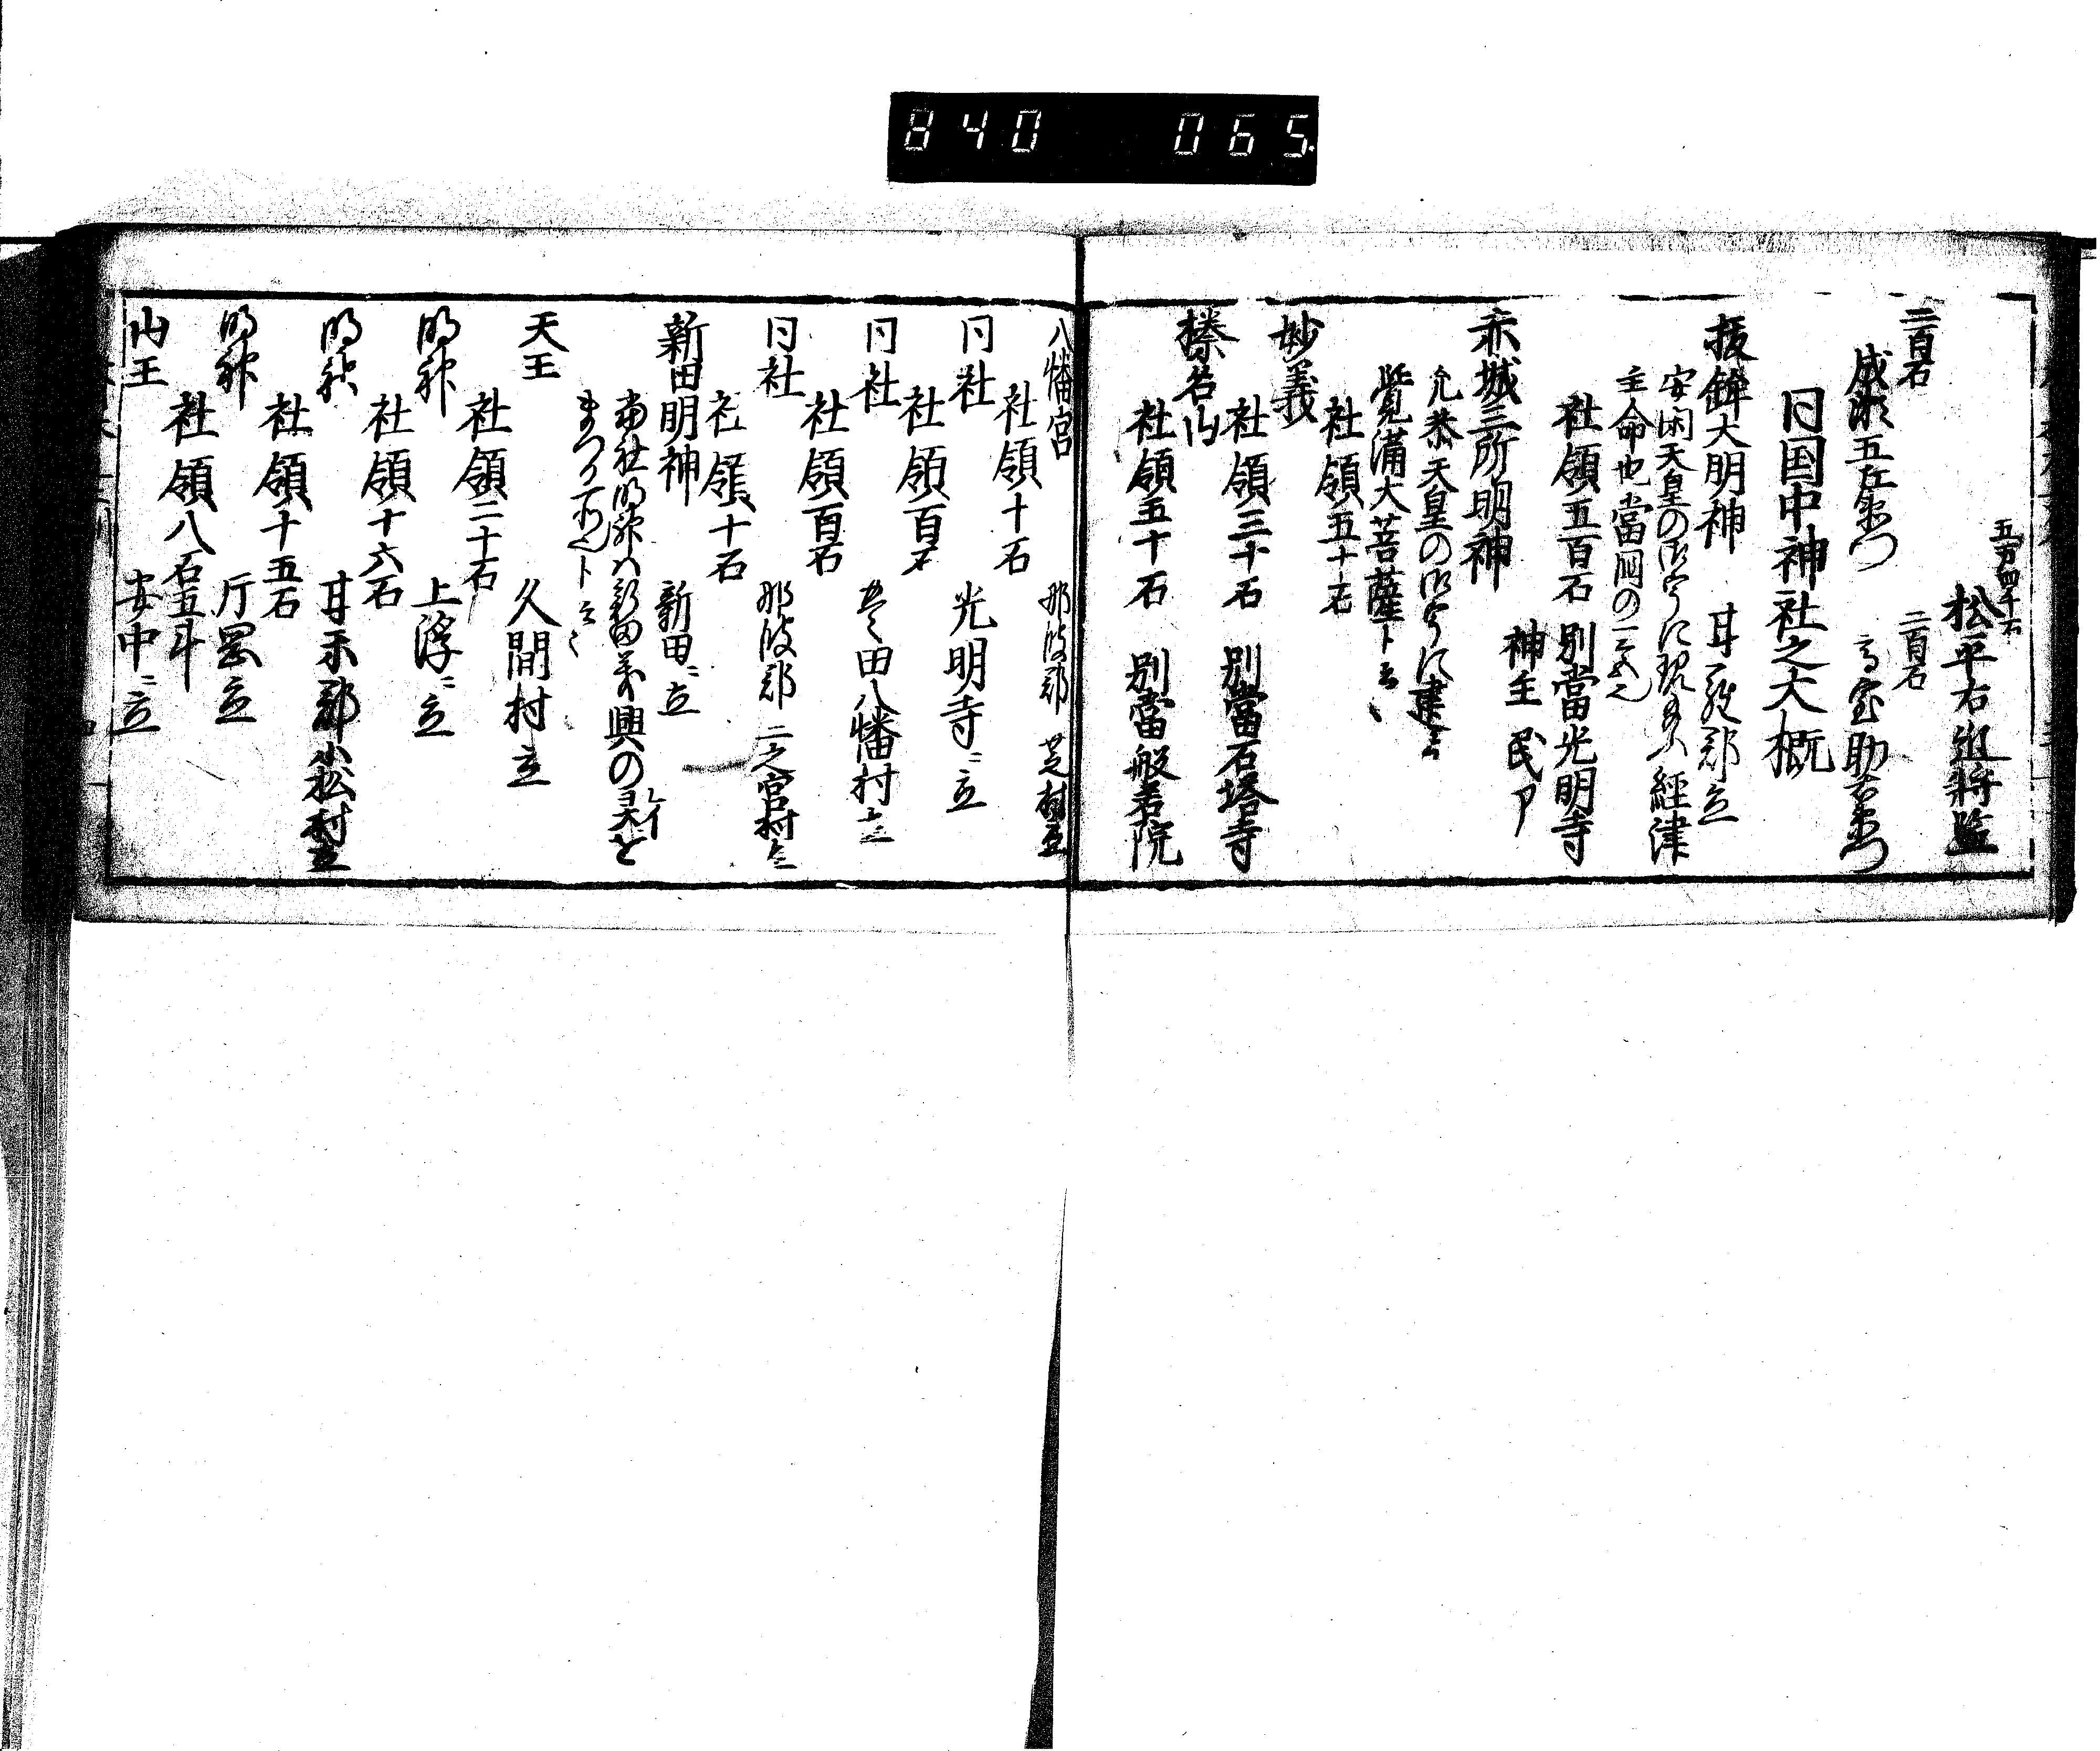 840 065
五万四千石
松平右近将監
二百石
成瀬五左衛門
二百石
高室助右衛門
同国中神社之大概
抜鉾大明神 甘羅郡立
安閑天皇の御宇に現給ふ経津
主命也當国の一宮也
社領五百石 別當光明寺
神主 民ア
赤城三所明神
允恭天皇の御宇に建立
覚満大菩薩ト云々
社領五十石
妙義
社領三十石 別當石塔寺
榛名山
社領五十石 別當般若院
八幡宮 那波郡 芝村立
社領十石
同社 光明寺ニ立
社領百石
同社 田八幡村立
社領百石
同社 那波郡 二之宮村立
社領十石
新田明神 新田ニ立
當社明神ハ新田義興の灵を
まつる所也ト云々
天王 久間村立
社領二十石
明神 上浮ニ立
社領十六石
明神 甘楽郡小松村立
社領十五石
明神 片岡立
社領八石五斗
山王 安中ニ立